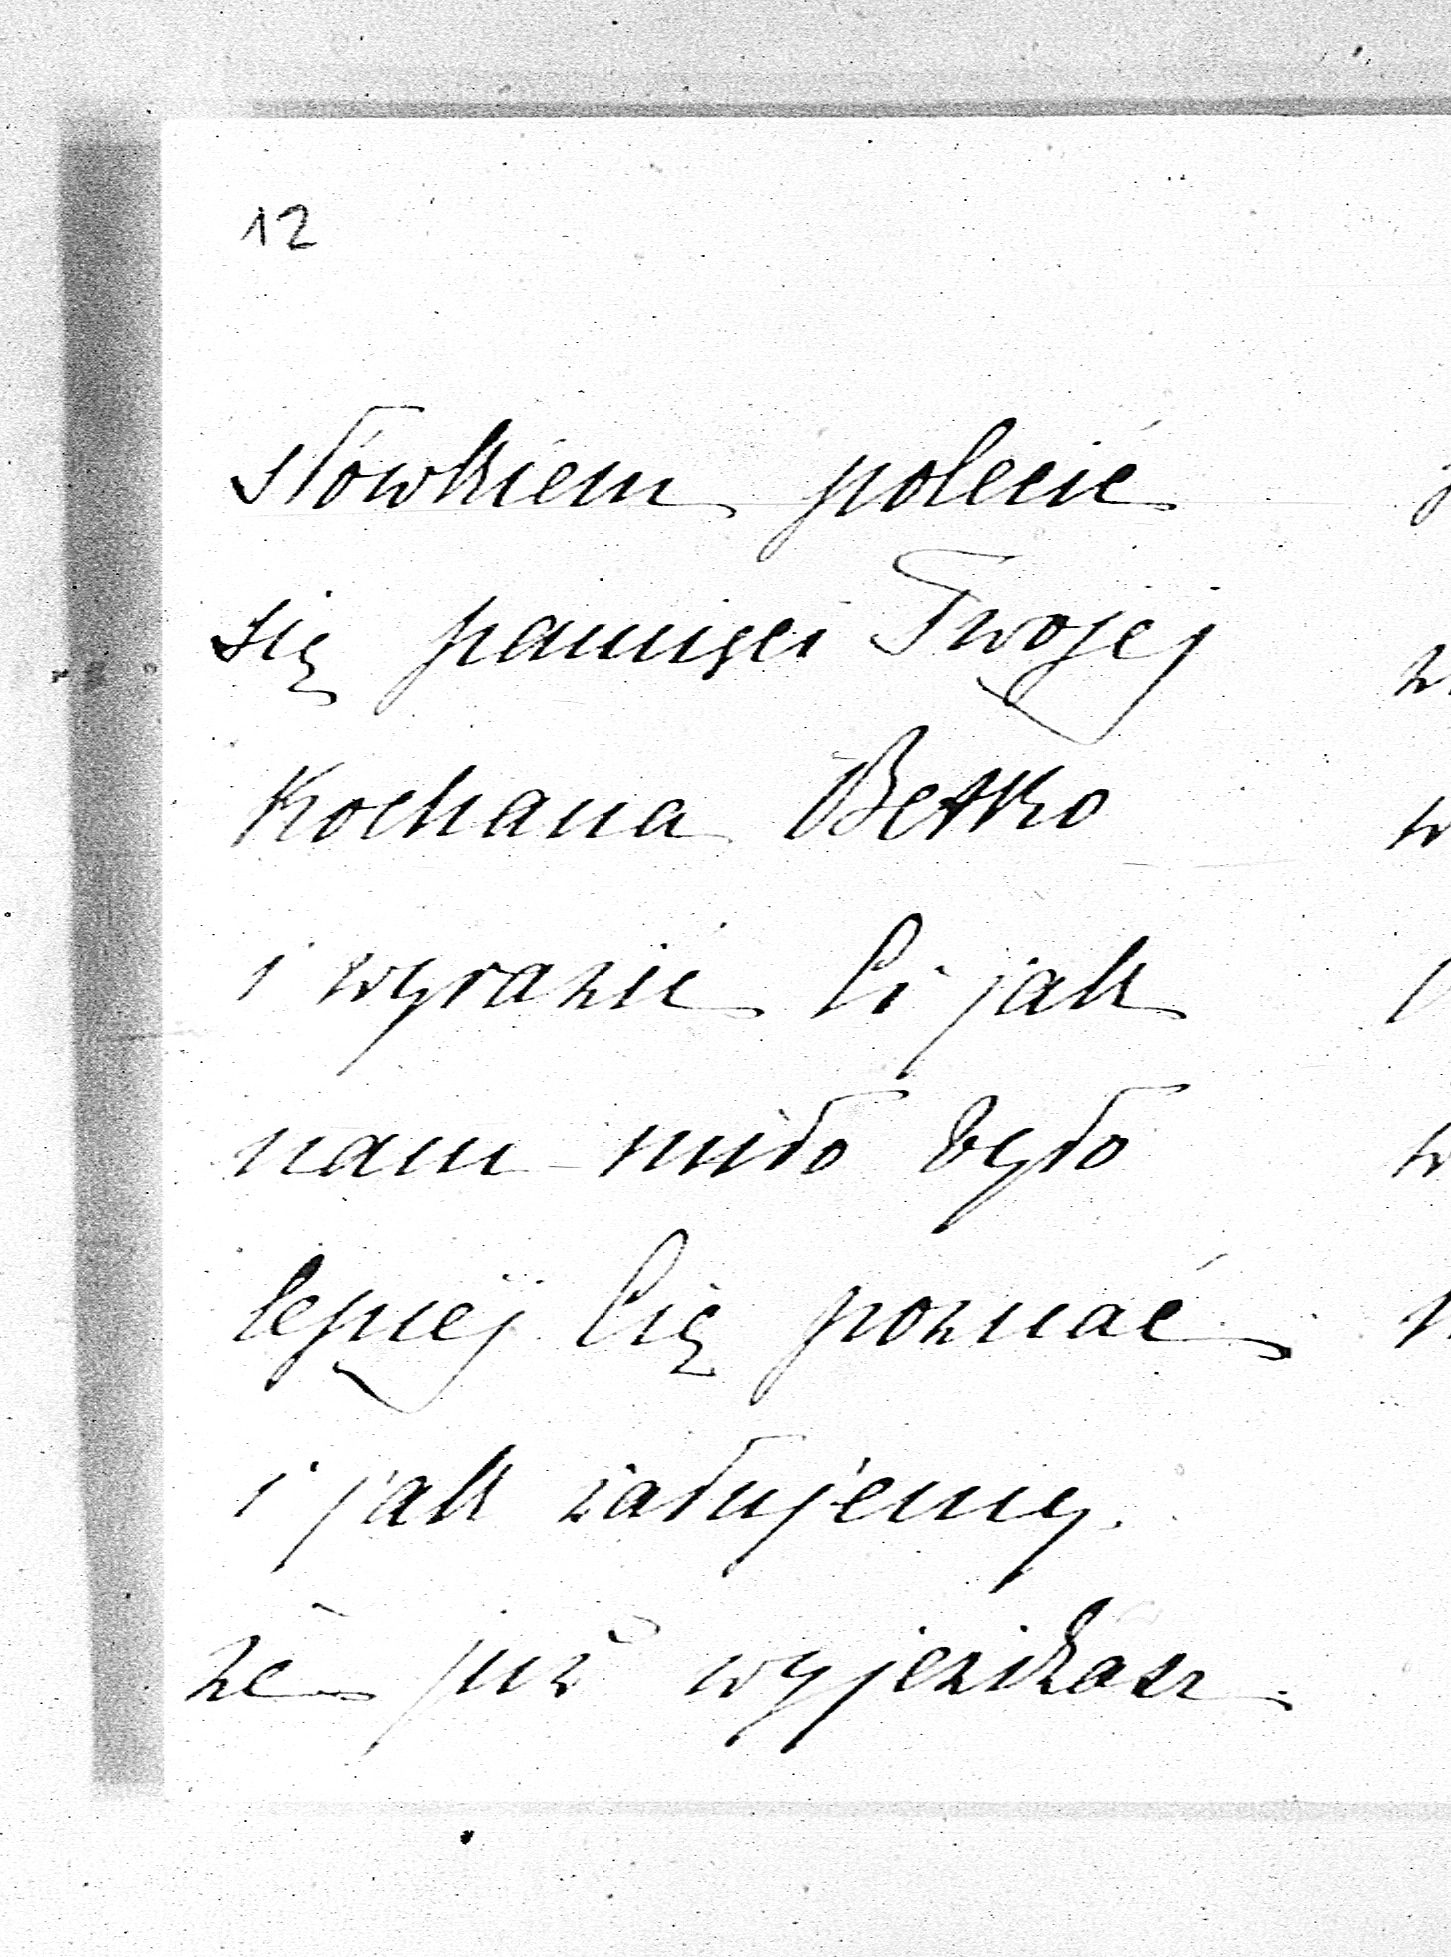 12
słówkiem polecić
się pamięci Twojej
Kochana Betko
i wyrazić Ci jak
nam miło było
lepiej Cię poznać
i jak żałujemy
że już wyjeżdżasz